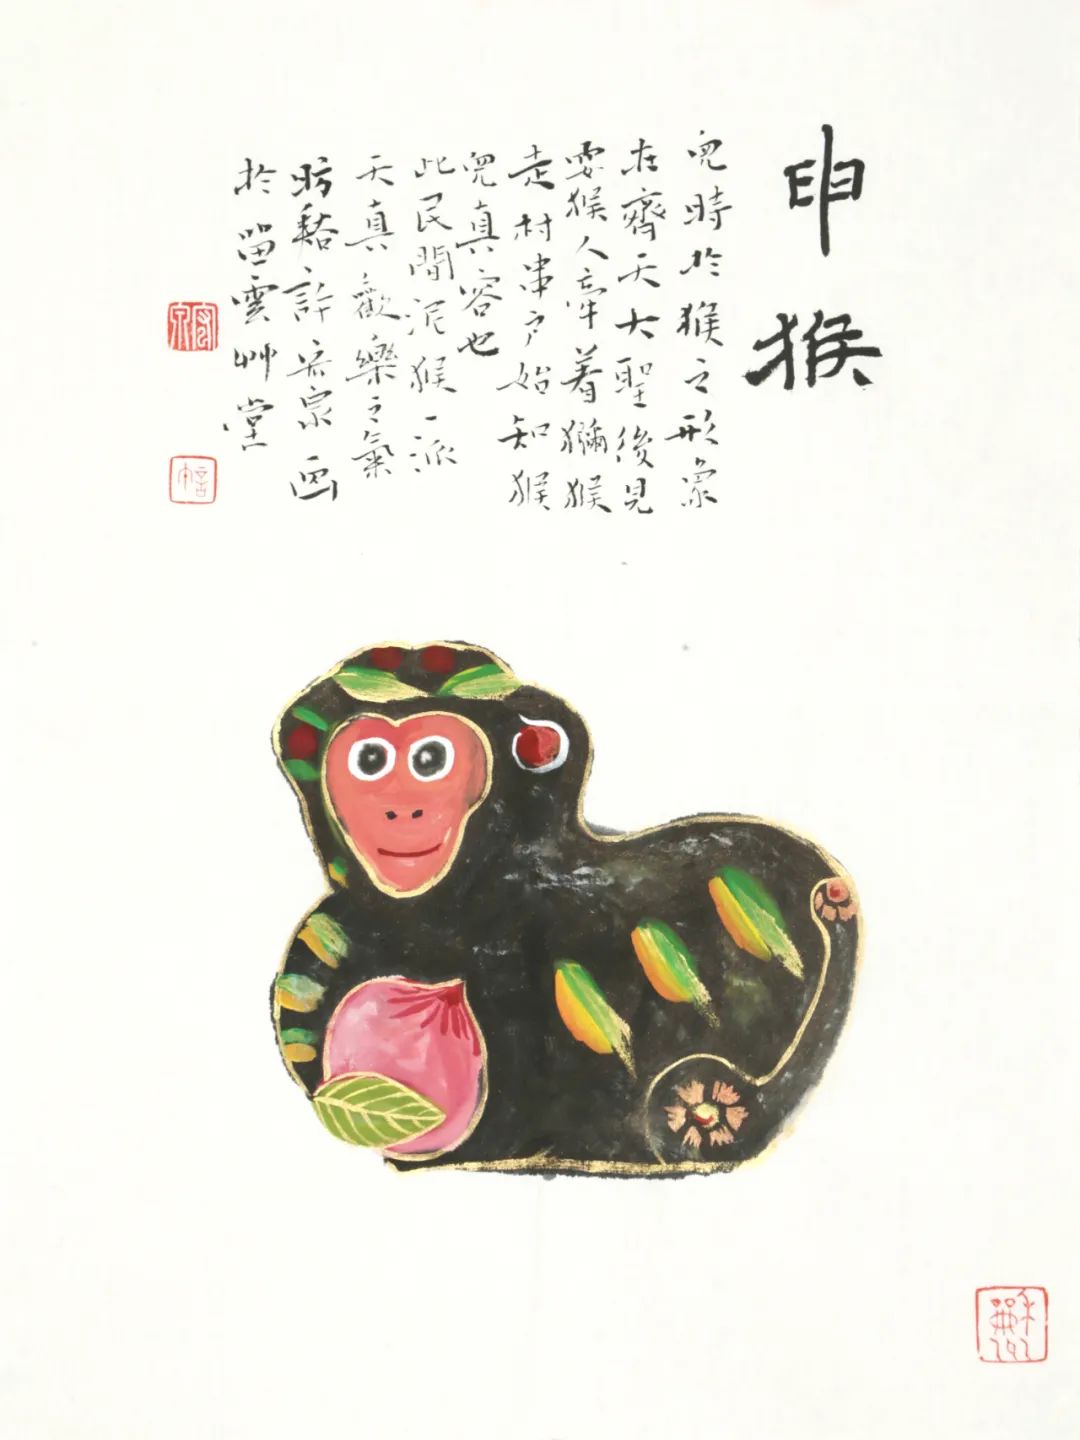 申猴
兒時於猴之形象
在齊天大聖後見
耍猴人牽着獼猴
走村串户始知猴
兒真容也
此民間泥猴一派
天真歡樂之氣
於留雲艸堂